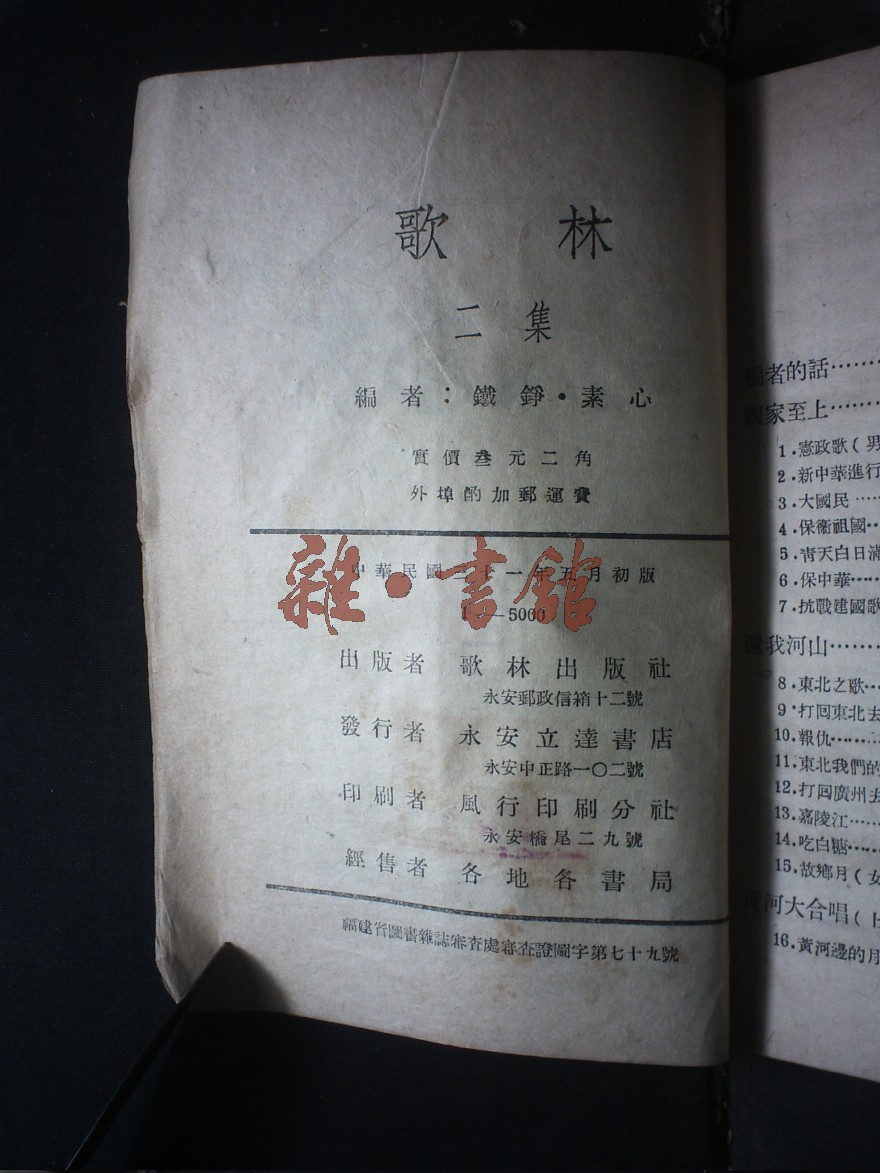 歌林
二集
編者：鐵錚・素心
實價叁元二角
外埠酌加郵運費
中華民國三十一年五月初版
1—5000
雜・書館
出版者 歌林出版社
永安郵政信箱十二號
發行者 永安立達書店
永安中正路一〇二號
印刷者 風行印刷分社
永安橋尾二九號
經售者 各地各書局
福建省圖書雜誌審查處審查證圖字第七十九號
編者的話……
國家至上……
1.憲政歌（男
2.新中華進行
3.大國民……
4.保衞祖國…
5.靑天白日滿
6.保中華……
7.抗戰建國歌
我河山……
8.東北之歌…
9.打回東北去
10.報仇……
11.東北我們的
12.打回廣州去
13.嘉陵江……
14.吃白糖……
15.故鄉月（女
黃河大合唱（
16.黃河邊的月